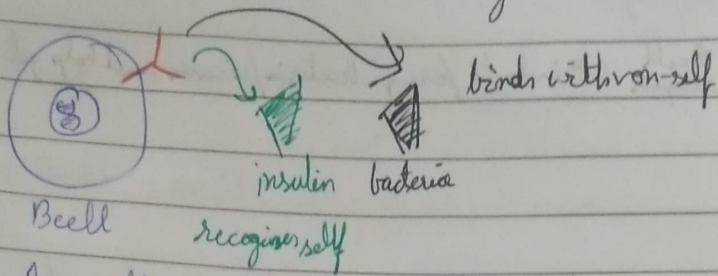 binds with non-self
insulin bacteria
Bcell
recognises self